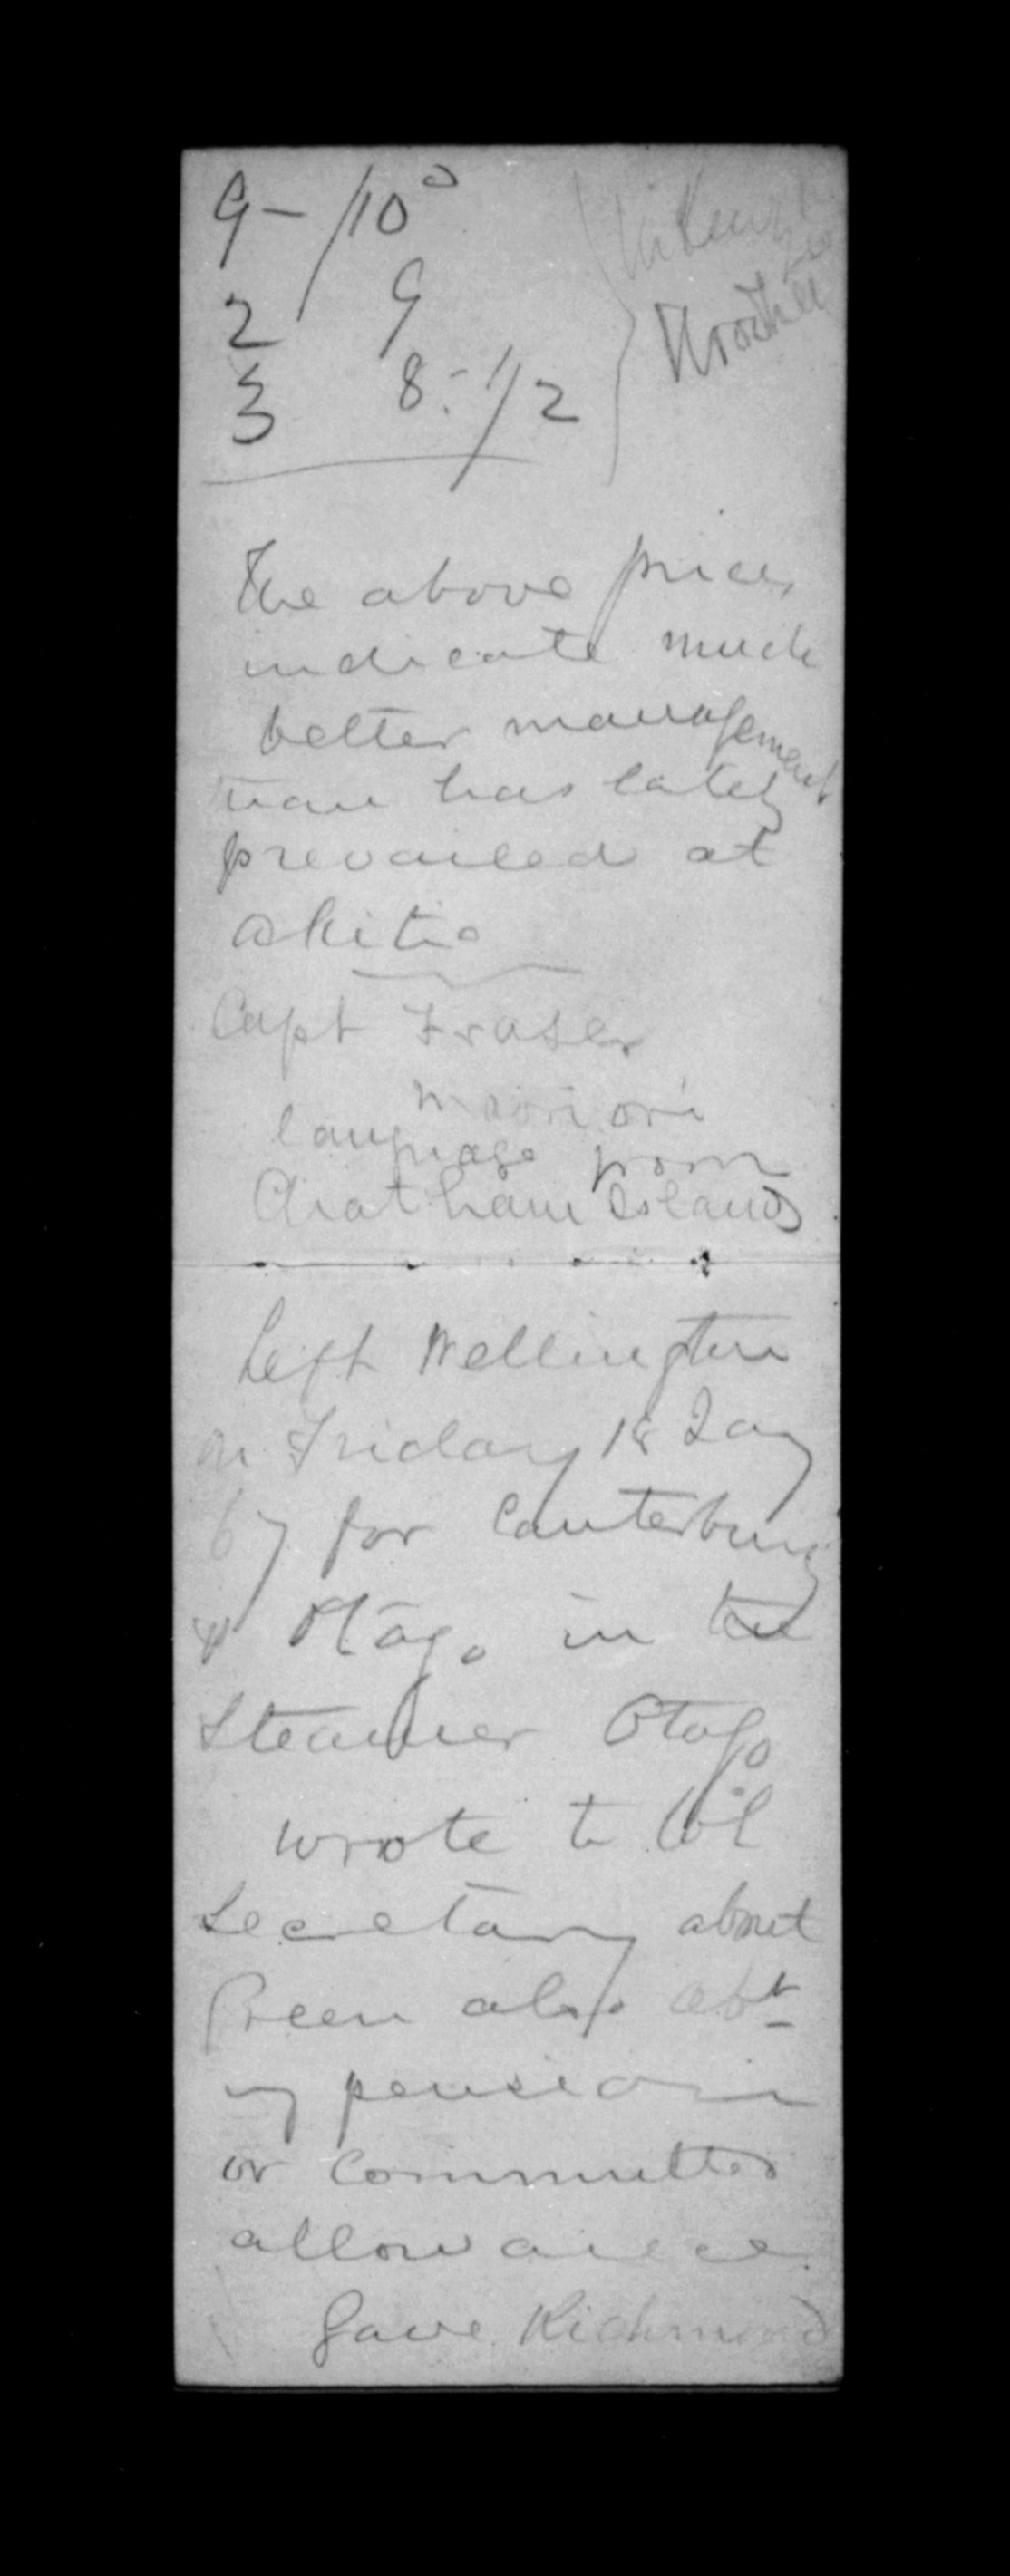 9 - /10
2 9
3 8. 1/2
The above prices
indicate much
better management
than has lately
prevailed at
Akitio
Capt Fraser
Maoriori
language from
Chatham Islands
Left Wellington
on Friday 18 Jay
67 for Canterbury
& Otago in the
Steamer Otago
wrote to Col
Secretary about
Green also abt
my pension
or committed
allowance
Gave Richmond